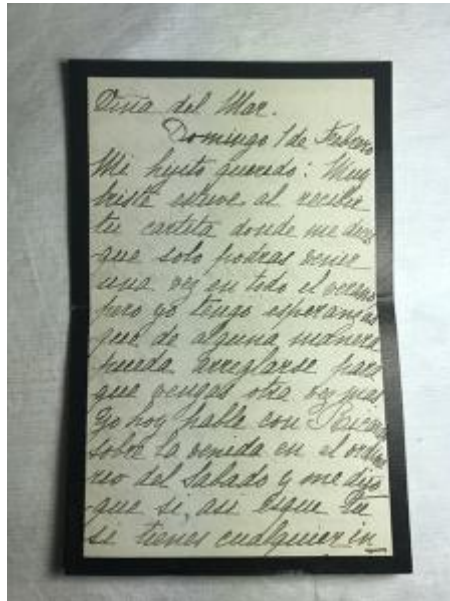 Viña del Mar.
Domingo 1 de Febrero
Mi hijito querido: Muy
triste estuve al recibir
tu cartita donde me dices
que solo podras venir
una vez en todo el verano
pero yo tengo esperansas
que de alguna manera
pueda arreglarse para
que vengas otra vez mas
Yo hoy hable con
sobre la venida en el ordina
rio del Sabado y me dijo
que si, asi esque tu
si tienes cualquier in